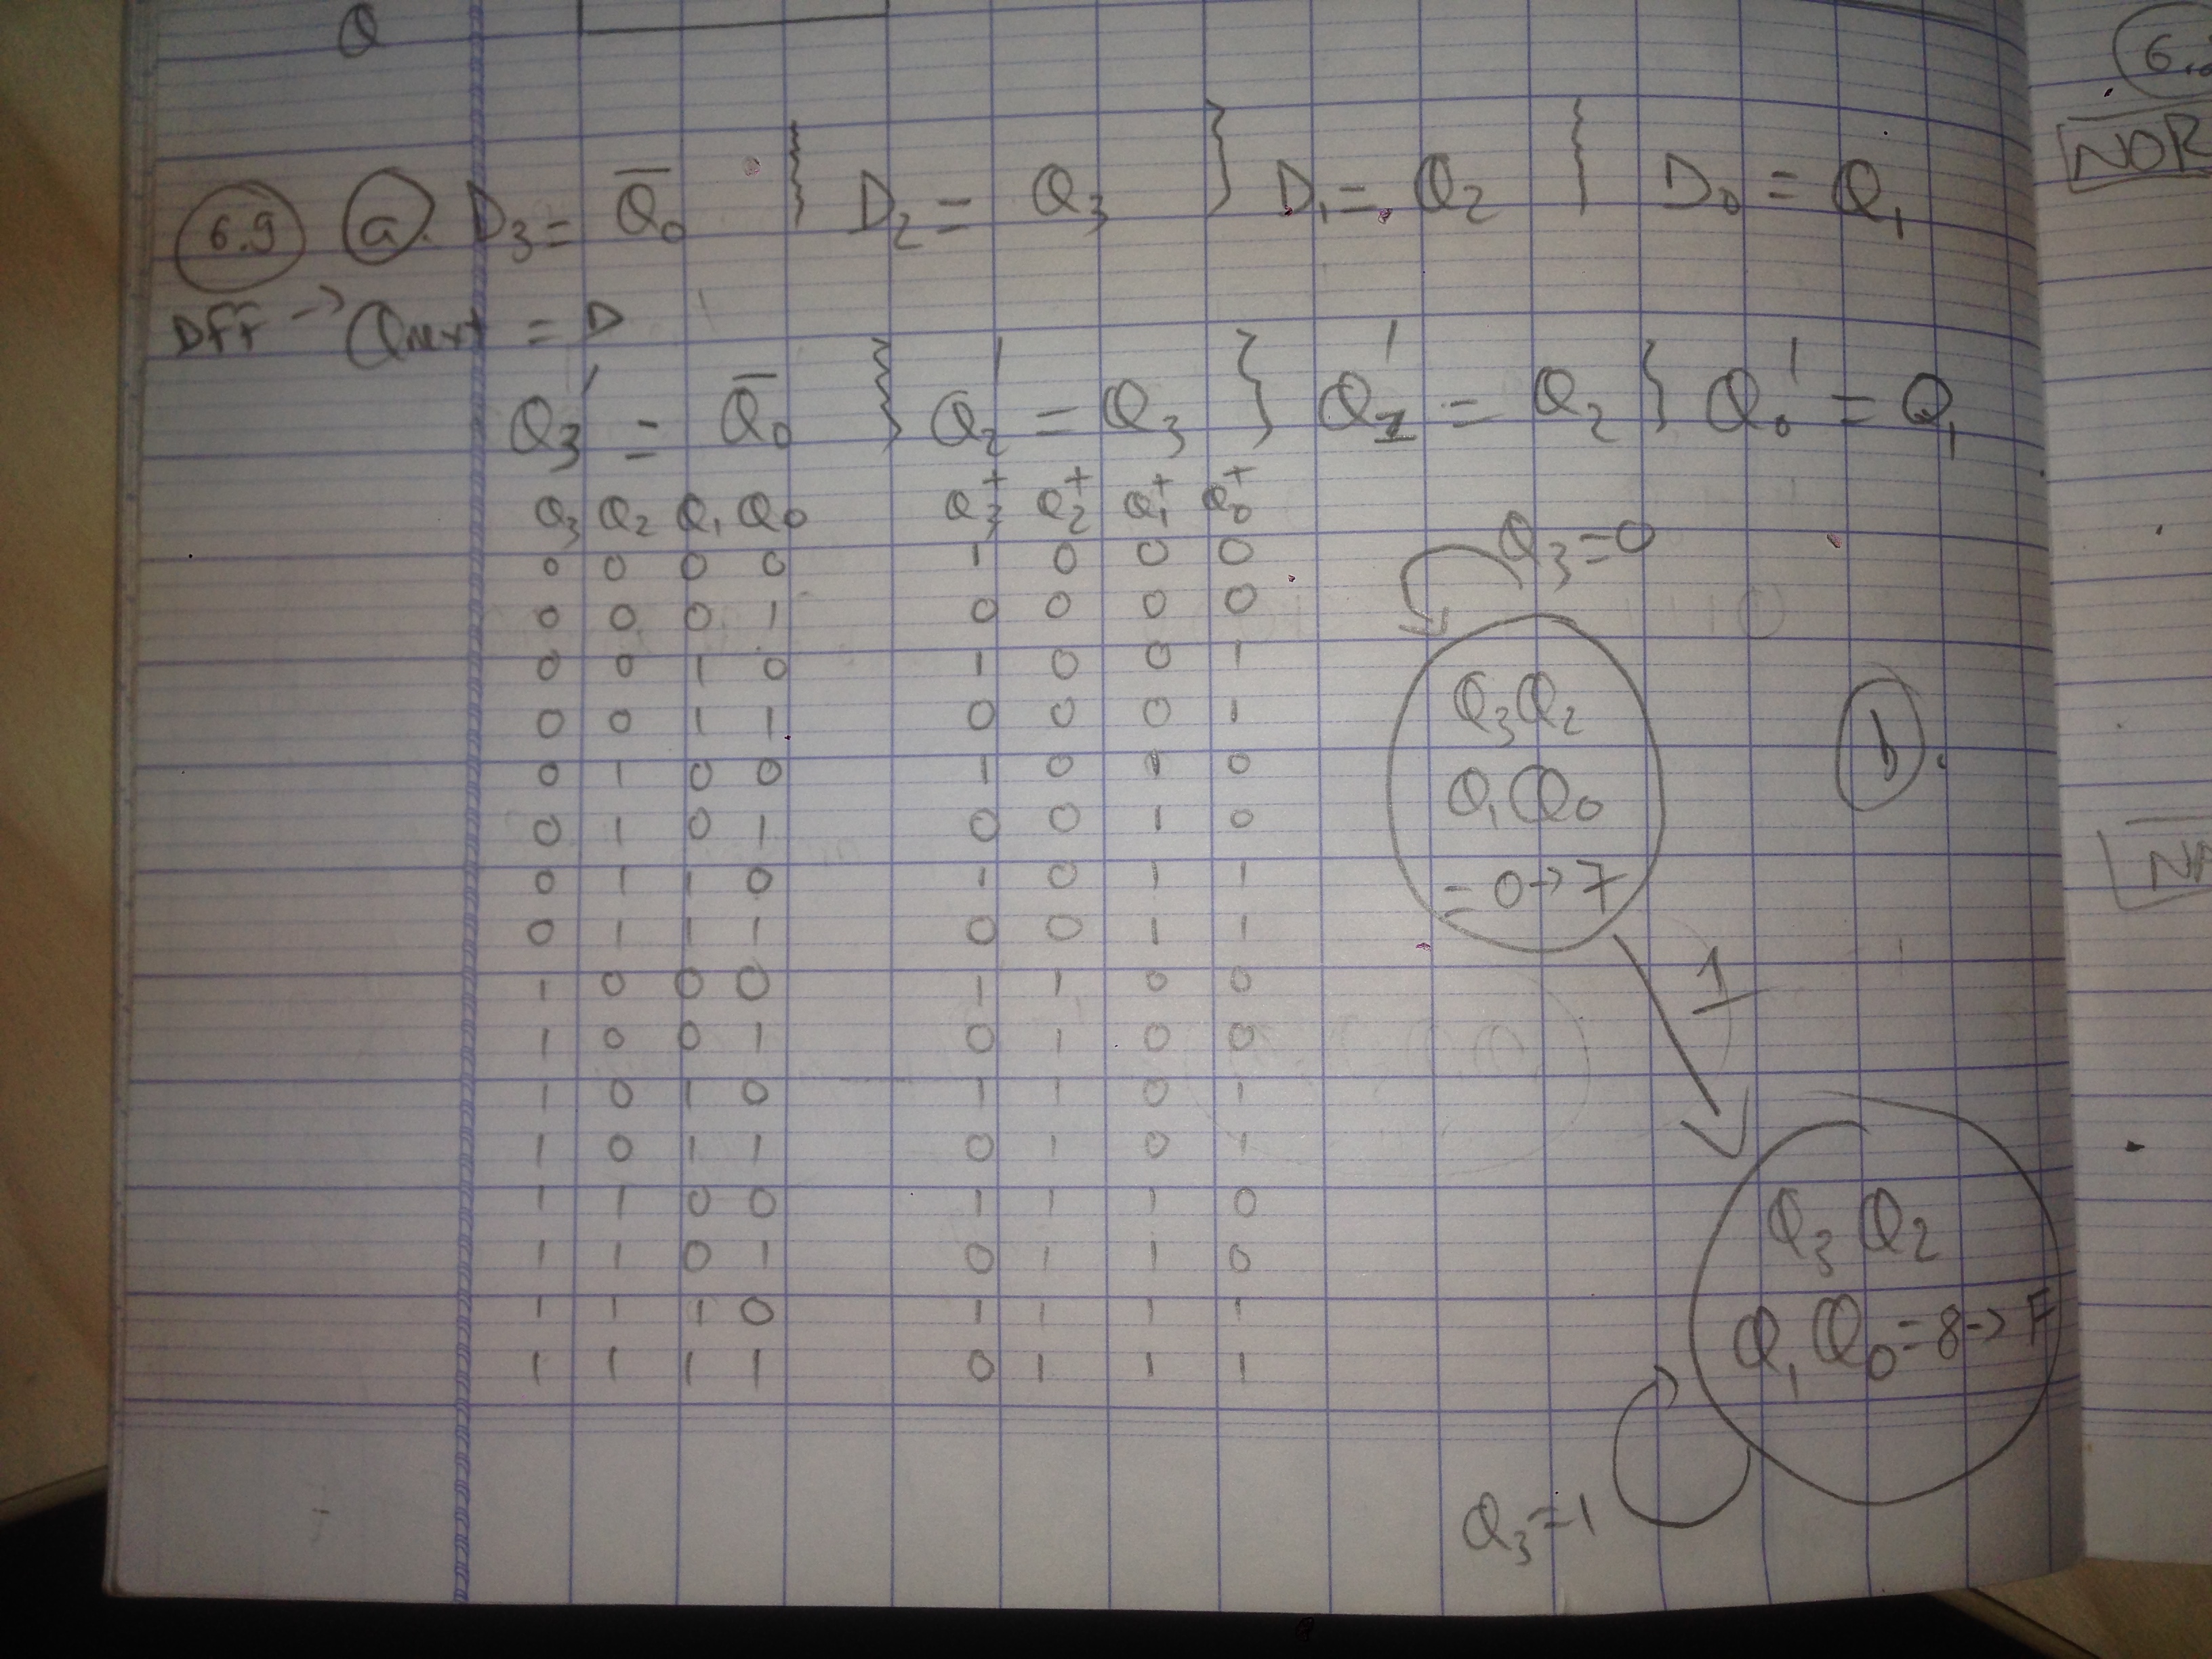 Q
6.9 a. D3 = Q̅0 } D2 = Q3 } D1 = Q2 } D0 = Q1
Dff -> Qnext = D
Q3' = Q̅0 } Q2' = Q3 } Q1' = Q2 } Q0' = Q1
Q3 Q2 Q1 Q0 Q3+ Q2+ Q1+ Q0+
0 0 0 0 1 0 0 0
0 0 0 1 0 0 0 0
0 0 1 0 1 0 0 1
0 0 1 1 0 0 0 1
0 1 0 0 1 0 1 0
0 1 0 1 0 0 1 0
0 1 1 0 1 0 1 1
0 1 1 1 0 0 1 1
1 0 0 0 1 1 0 0
1 0 0 1 0 1 0 0
1 0 1 0 1 1 0 1
1 0 1 1 0 1 0 1
1 1 0 0 1 1 1 0
1 1 0 1 0 1 1 0
1 1 1 0 1 1 1 1
1 1 1 1 0 1 1 1
Q3=0
Q3Q2
Q1Q0
=0->7
1
b.
Q3Q2
Q1Q0=8->F
Q3=1
NOR